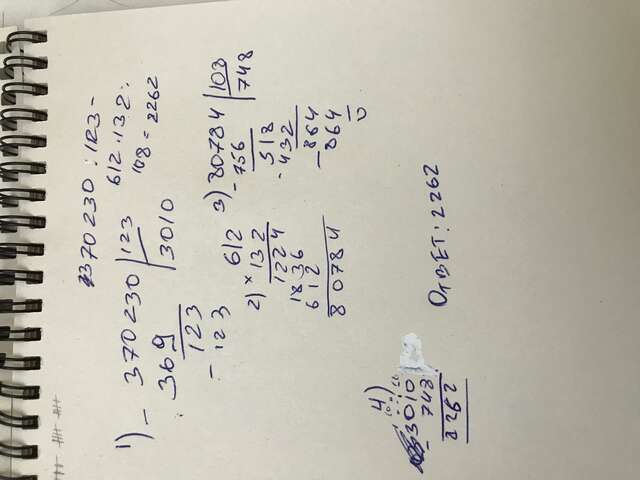 370230 : 123 -
612 · 132 :
108 = 2262
1) - 370230 | 123
369 | 3010
123
- 123
2) × 612
132
1224
1836
612
80784
3) 80784 | 108
- 756 | 748
518
- 432
864
- 864
0
4)
3010
- 748
2262
ОТВЕТ: 2262